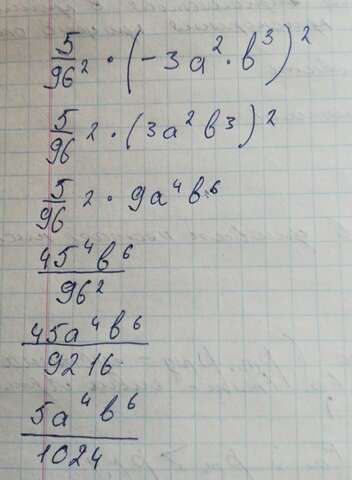 5/96² · (-3a² · b³)²
5/96 2 · (3a² b³)²
5/96 2 · 9a⁴b⁶
45⁴b⁶/96²
45a⁴b⁶/9216
5a⁴b⁶/1024